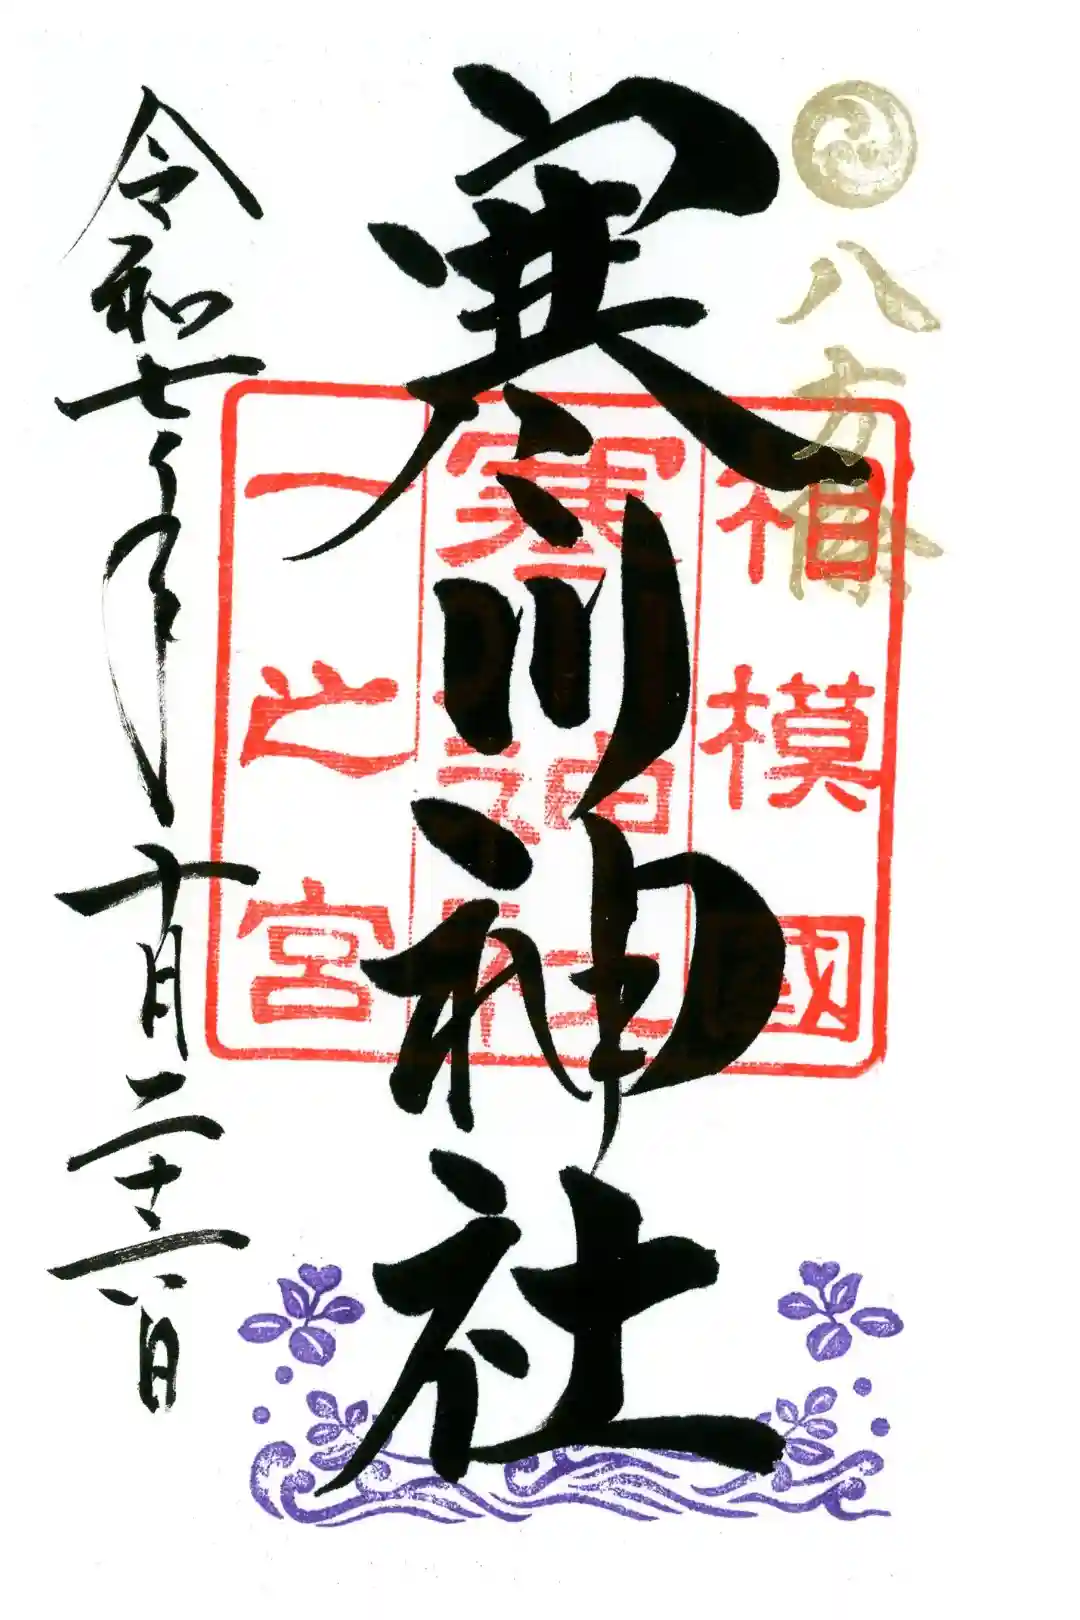 八方除
寒川神社
相模國
寒川神社
一之宮
令和七年十月二十六日